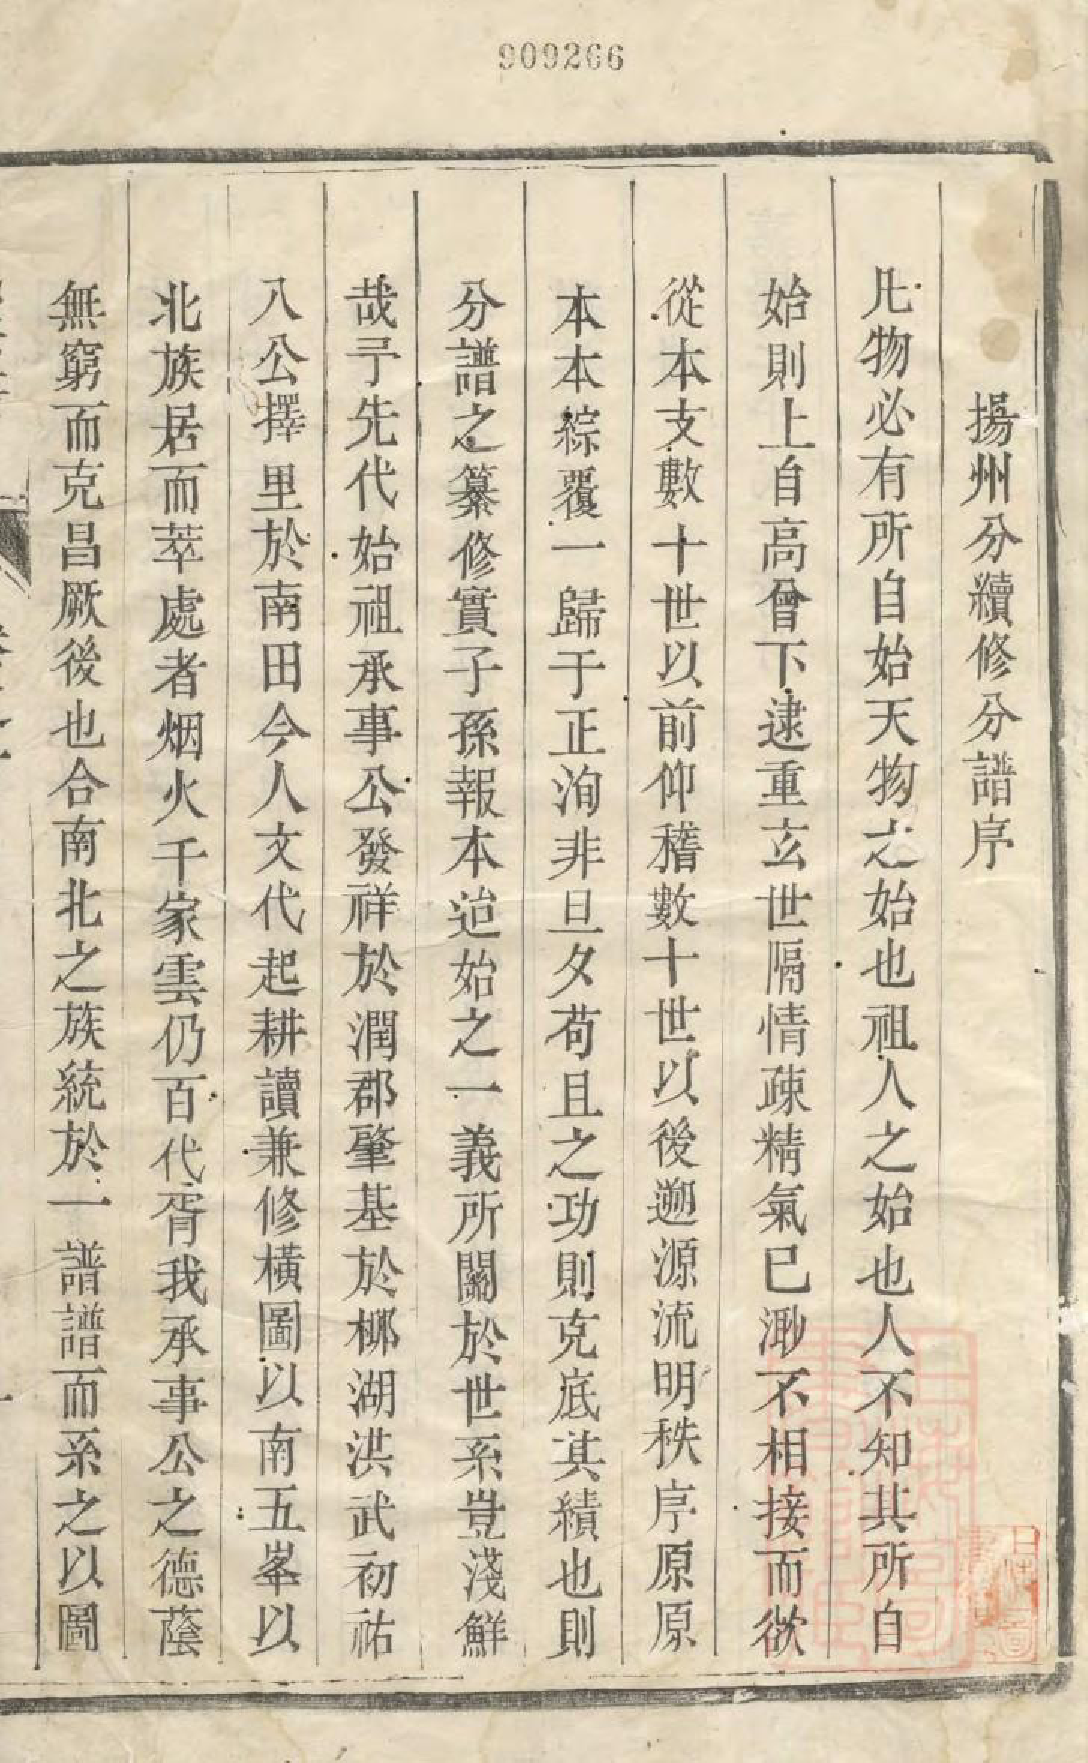 909266
揚州分續修分譜序
凡物必有所自始天物之始也祖人之始也人不知其所自
始則上自高曾下逮重玄世隔情疎精氣已渺不相接而欲
從本支數十世以前仰稽數十世以後遡源流明秩序原原
本本綜覆一歸于正洵非旦夕苟且之功則克底其績也則
分譜之纂修實子孫報本追始之一義所關於世系豈淺鮮
哉予先代始祖承事公發祥於潤郡肇基於桞湖洪武初祐
八公擇里於南田今人文代起耕讀兼修橫圖以南五峯以
北族居而萃處者烟火千家雲仍百代胥我承事公之德蔭
無窮而克昌厥後也合南北之族統於一譜譜而系之以圖